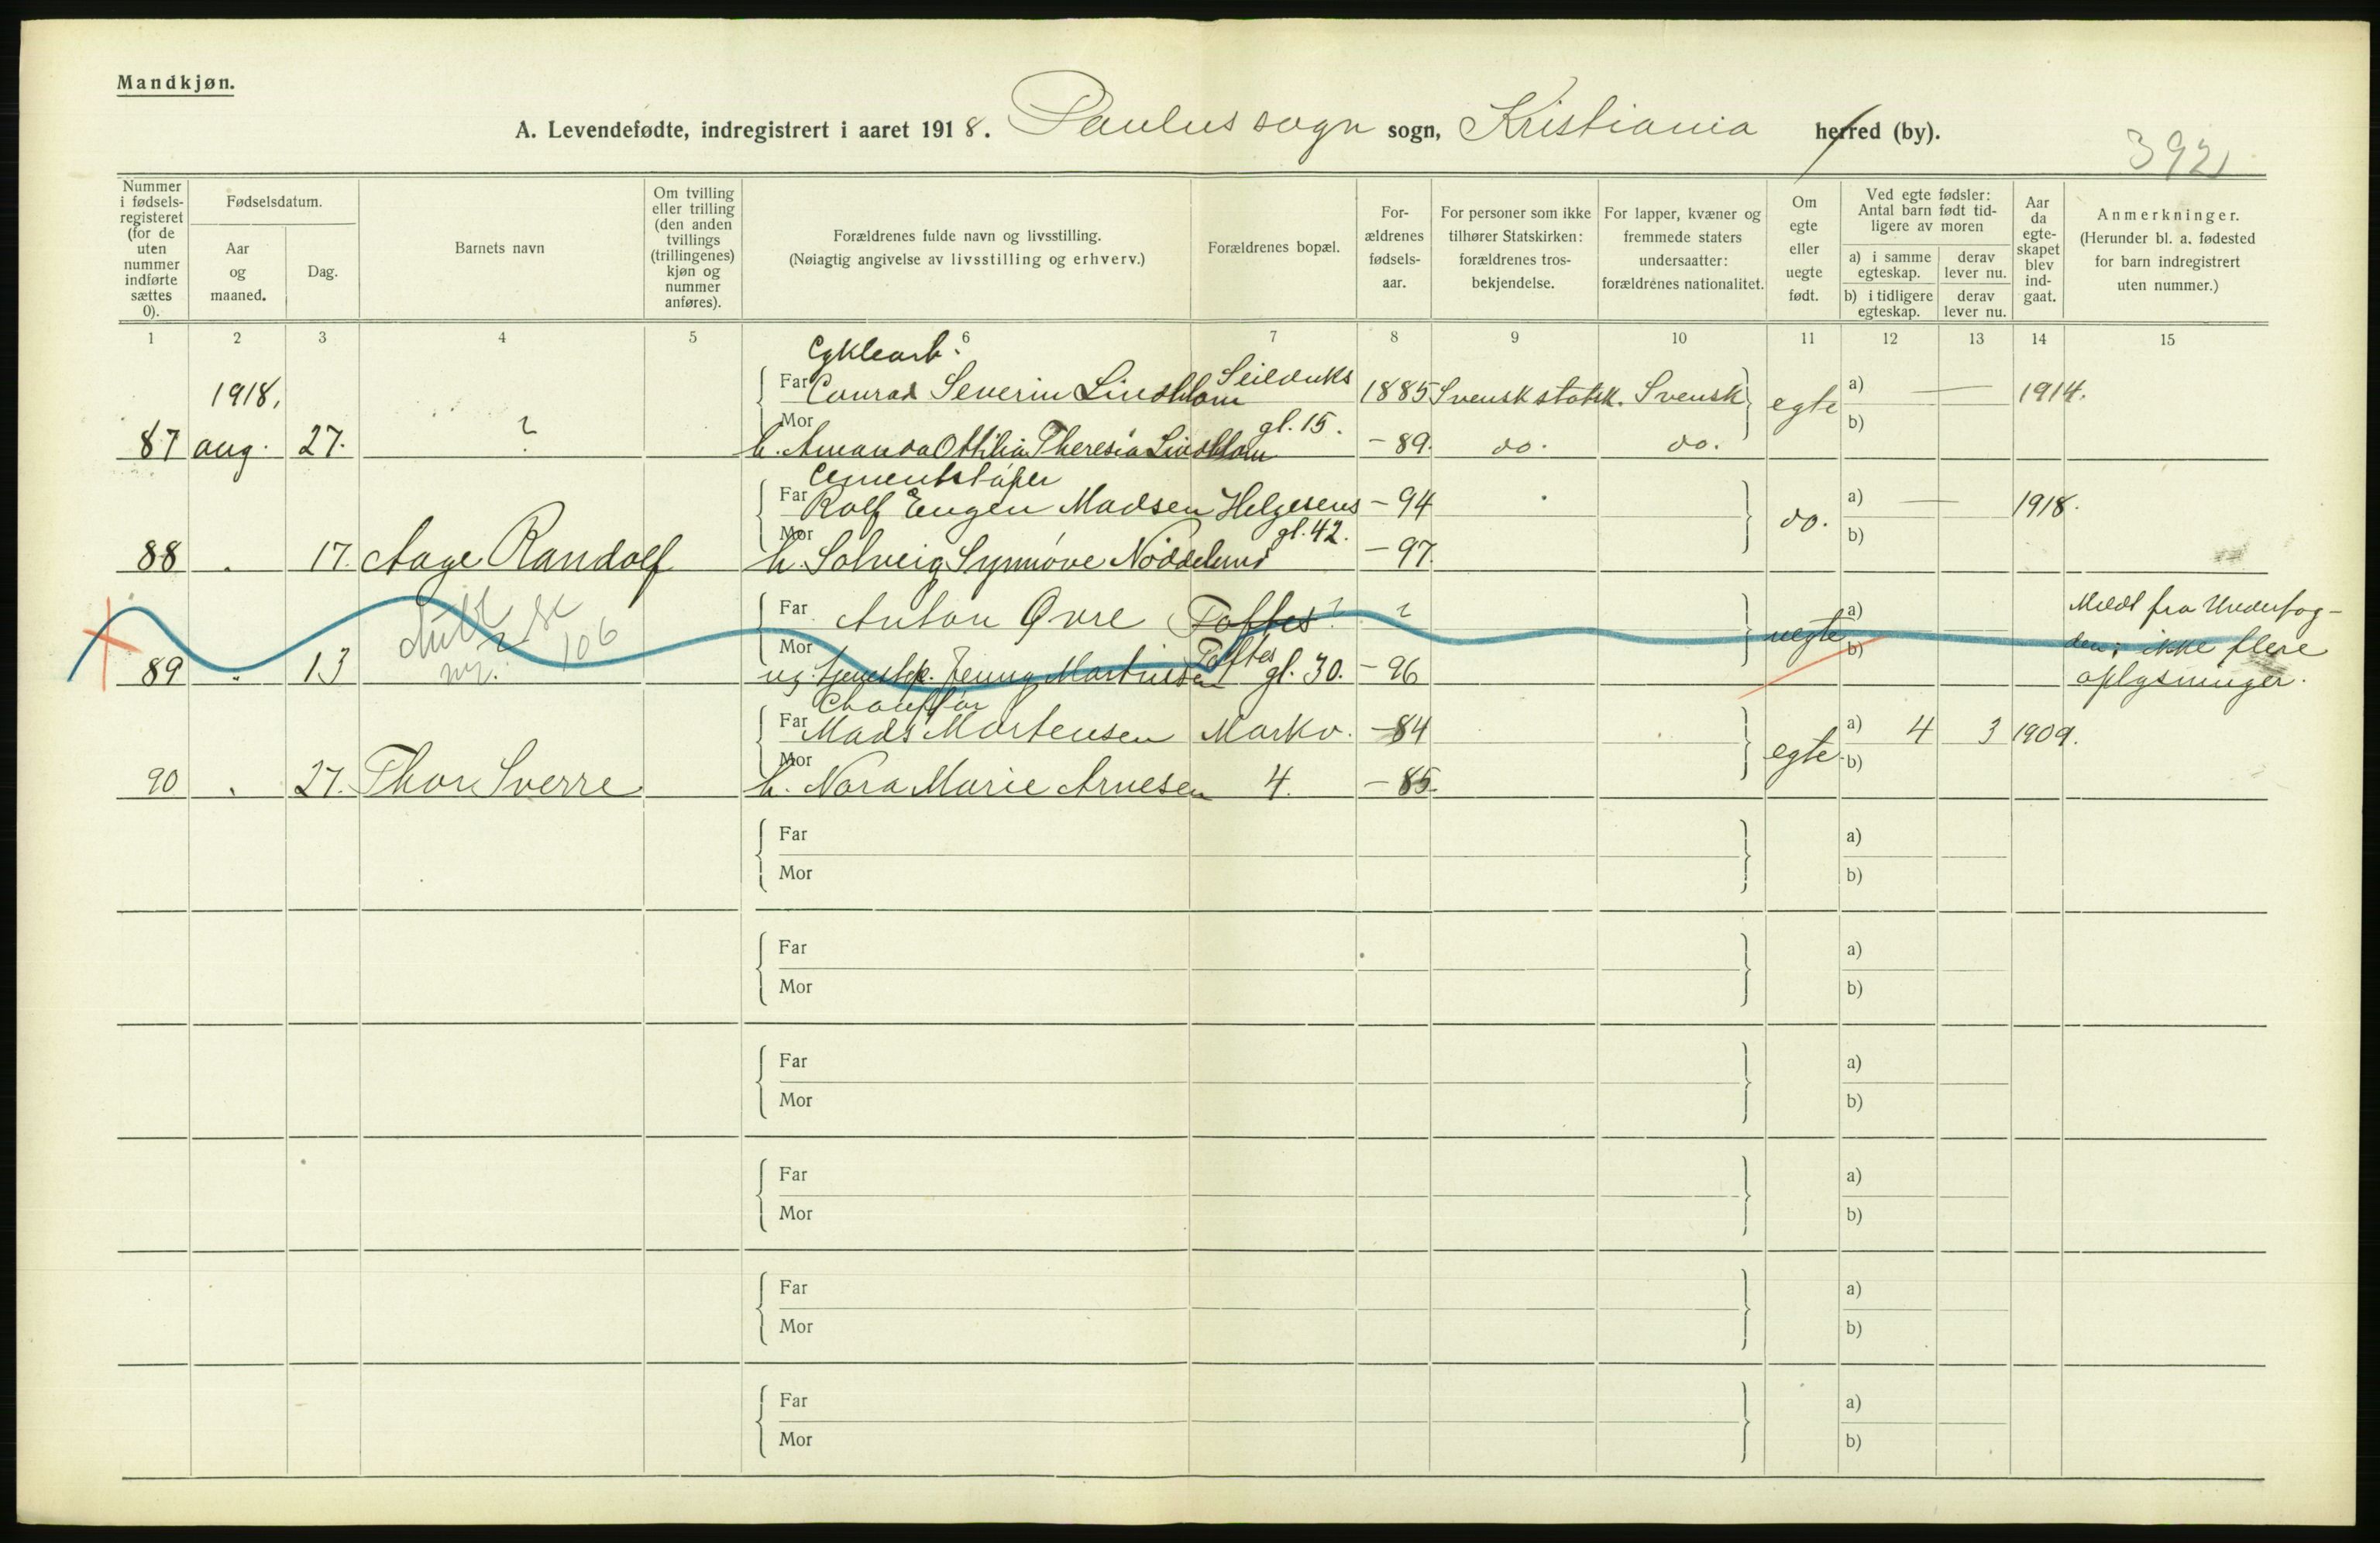 Mandkjøn.
A. Levendefødte, indregistrert i aaret 1918. Paulus sogn sogn, Kristiania herred (by).
392
Nummer i fødsels-registeret (for de uten nummer indførte sættes 0).
Fødselsdatum.
Aar og maaned.
Dag.
Barnets navn
Om tvilling eller trilling (den anden tvillings (trillingenes) kjøn og nummer anføres).
Forældrenes fulde navn og livsstilling.
(Nøiagtig angivelse av livsstilling og erhverv.)
Forældrenes bopæl.
For-ældrenes fødsels-aar.
For personer som ikke tilhører Statskirken: forældrenes tros-bekjendelse.
For lapper, kvæner og fremmede staters undersaatter: forældrenes nationalitet.
Om egte eller uegte født.
Ved egte fødsler: Antal barn født tid-ligere av moren
a) i samme egteskap.
derav lever nu.
b) i tidligere egteskap.
derav lever nu.
Aar da egte-skapet blev ind-gaat.
Anmerkninger.
(Herunder bl. a. fødested for barn indregistrert uten nummer.)
1 2 3 4 5 6 7 8 9 10 11 12 13 14 15
Cyklearb.
1918. Far Conrad Severin Lindblom Seilduks 1885 Svensk statsk. Svensk egte a) — 1914.
87 aug. 27. ? Mor h. Amanda Ottilia Theresia Lindblom gl. 15. – 89. do. do. b)
Cementstøper
Far Rolf Eugen Madsen Helgesens – 94 do. a) — 1918.
88 . 17. Aage Randolf Mor h. Solveig Synnøve Nøddelund gl. 42. – 97. b)
Far Anton Øvre Toftes ? ? uegte a) Meldt fra Underfog-
89 . 13 ? nr. 106 Mor ug. tjenestep. Jenny Martinsen Toftes gl. 30. – 96 b) den; ikke flere
oplysninger.
Chauffør
Far Mads Mortensen Markv. – 84 egte a) 4 3 1909.
90 . 27. Thor Sverre Mor h. Nora Marie Arnesen 4. – 85. b)
Far a)
Mor b)
Far a)
Mor b)
Far a)
Mor b)
Far a)
Mor b)
Far a)
Mor b)
Far a)
Mor b)